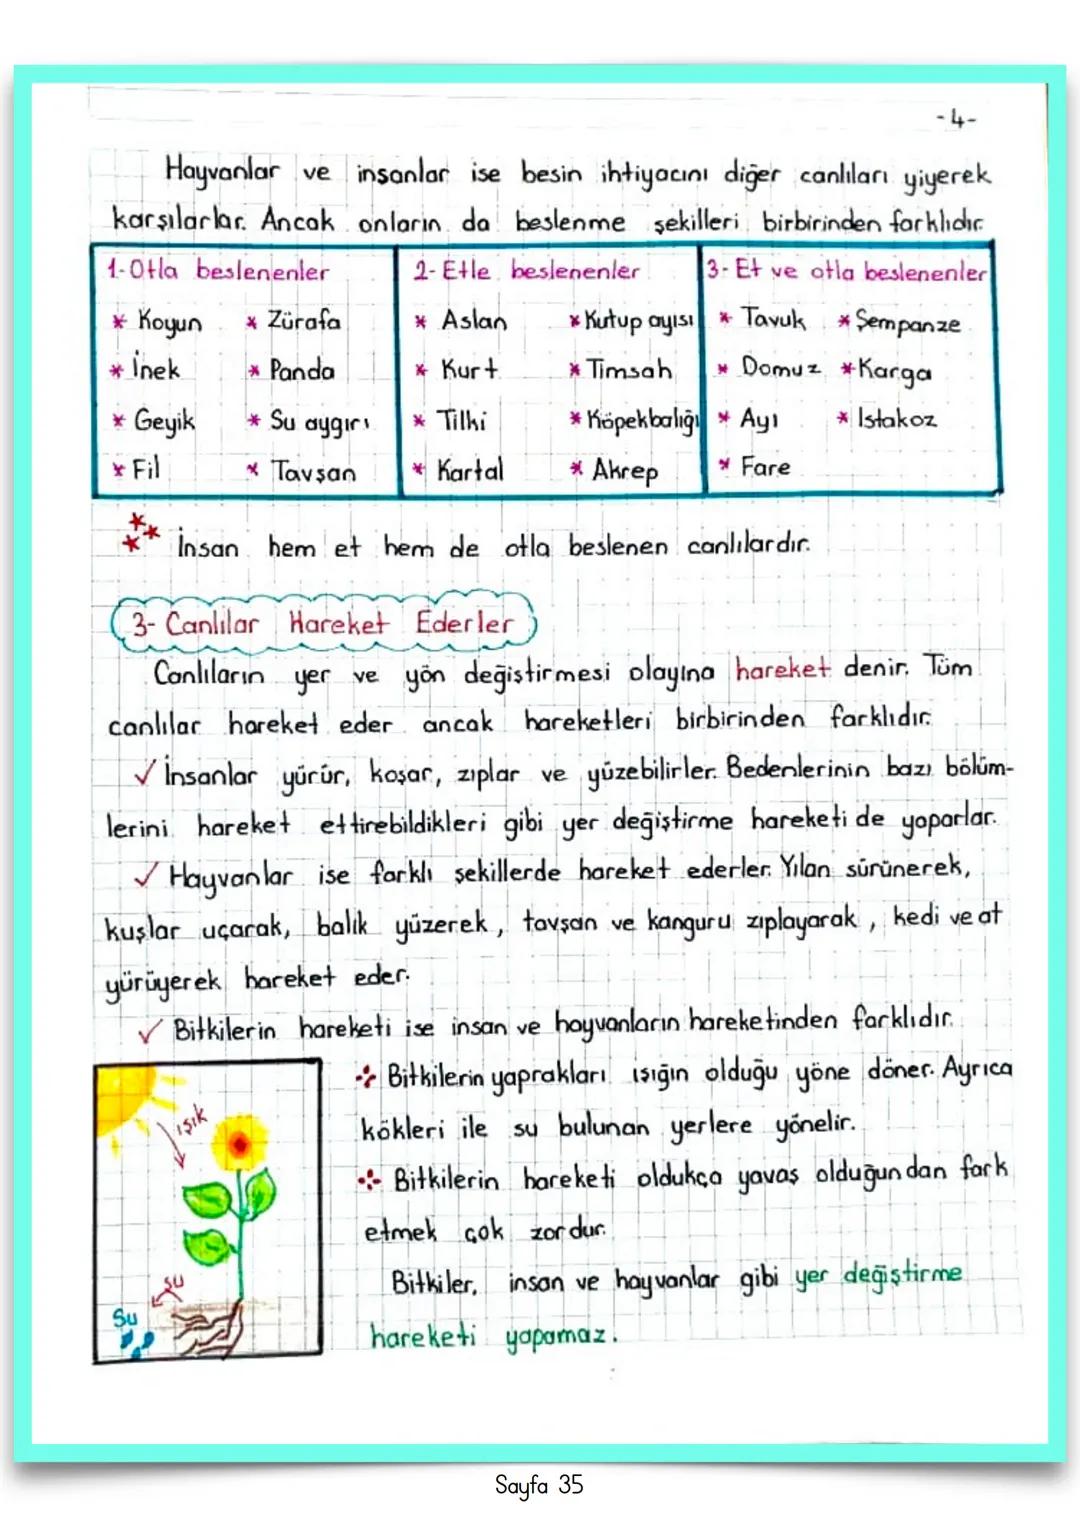 -4-
Hayvanlar ve insanlar ise besin ihtiyacını diğer canlıları yiyerek
karşılarlar. Ancak onların da beslenme şekilleri birbirinden farklıdır.
1-Otla beslenenler
* Koyun * Zürafa
* İnek * Panda
* Geyik * Su aygırı
* Fil * Tavşan
2- Etle beslenenler
* Aslan * Kutup ayısı
* Kurt * Timsah
* Tilki * Köpekbalığı
* Kartal * Akrep
3- Et ve otla beslenenler
* Tavuk * Şempanze
* Domuz * Karga
* Ayı * Istakoz
* Fare
*** İnsan hem et hem de otla beslenen canlılardır.
3- Canlılar Hareket Ederler
Canlıların yer ve yön değiştirmesi olayına hareket denir. Tüm
canlılar hareket eder ancak hareketleri birbirinden farklıdır.
✓ İnsanlar yürür, koşar, zıplar ve yüzebilirler. Bedenlerinin bazı bölüm-
lerini hareket ettirebildikleri gibi yer değiştirme hareketi de yaparlar.
✓ Hayvanlar ise farklı şekillerde hareket ederler. Yılan sürünerek,
kuşlar uçarak, balık yüzerek, tavşan ve kanguru zıplayarak, kedi ve at
yürüyerek hareket eder.
✓ Bitkilerin hareketi ise insan ve hayvanların hareketinden farklıdır.
Bitkilerin yaprakları ışığın olduğu yöne döner. Ayrıca
kökleri ile su bulunan yerlere yönelir.
Bitkilerin hareketi oldukça yavaş olduğundan fark
etmek çok zordur.
Bitkiler, insan ve hayvanlar gibi yer değiştirme
hareketi yapamaz.
ışık
su
Su
Sayfa 35